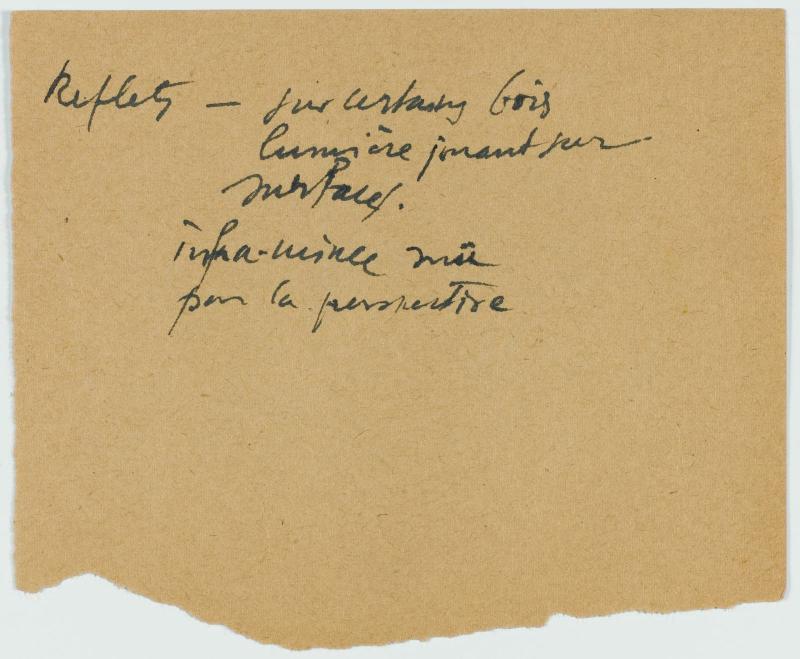 Reflets — sur certains bois
lumière jouant sur
surfaces.
infra-mince mû
par la perspective